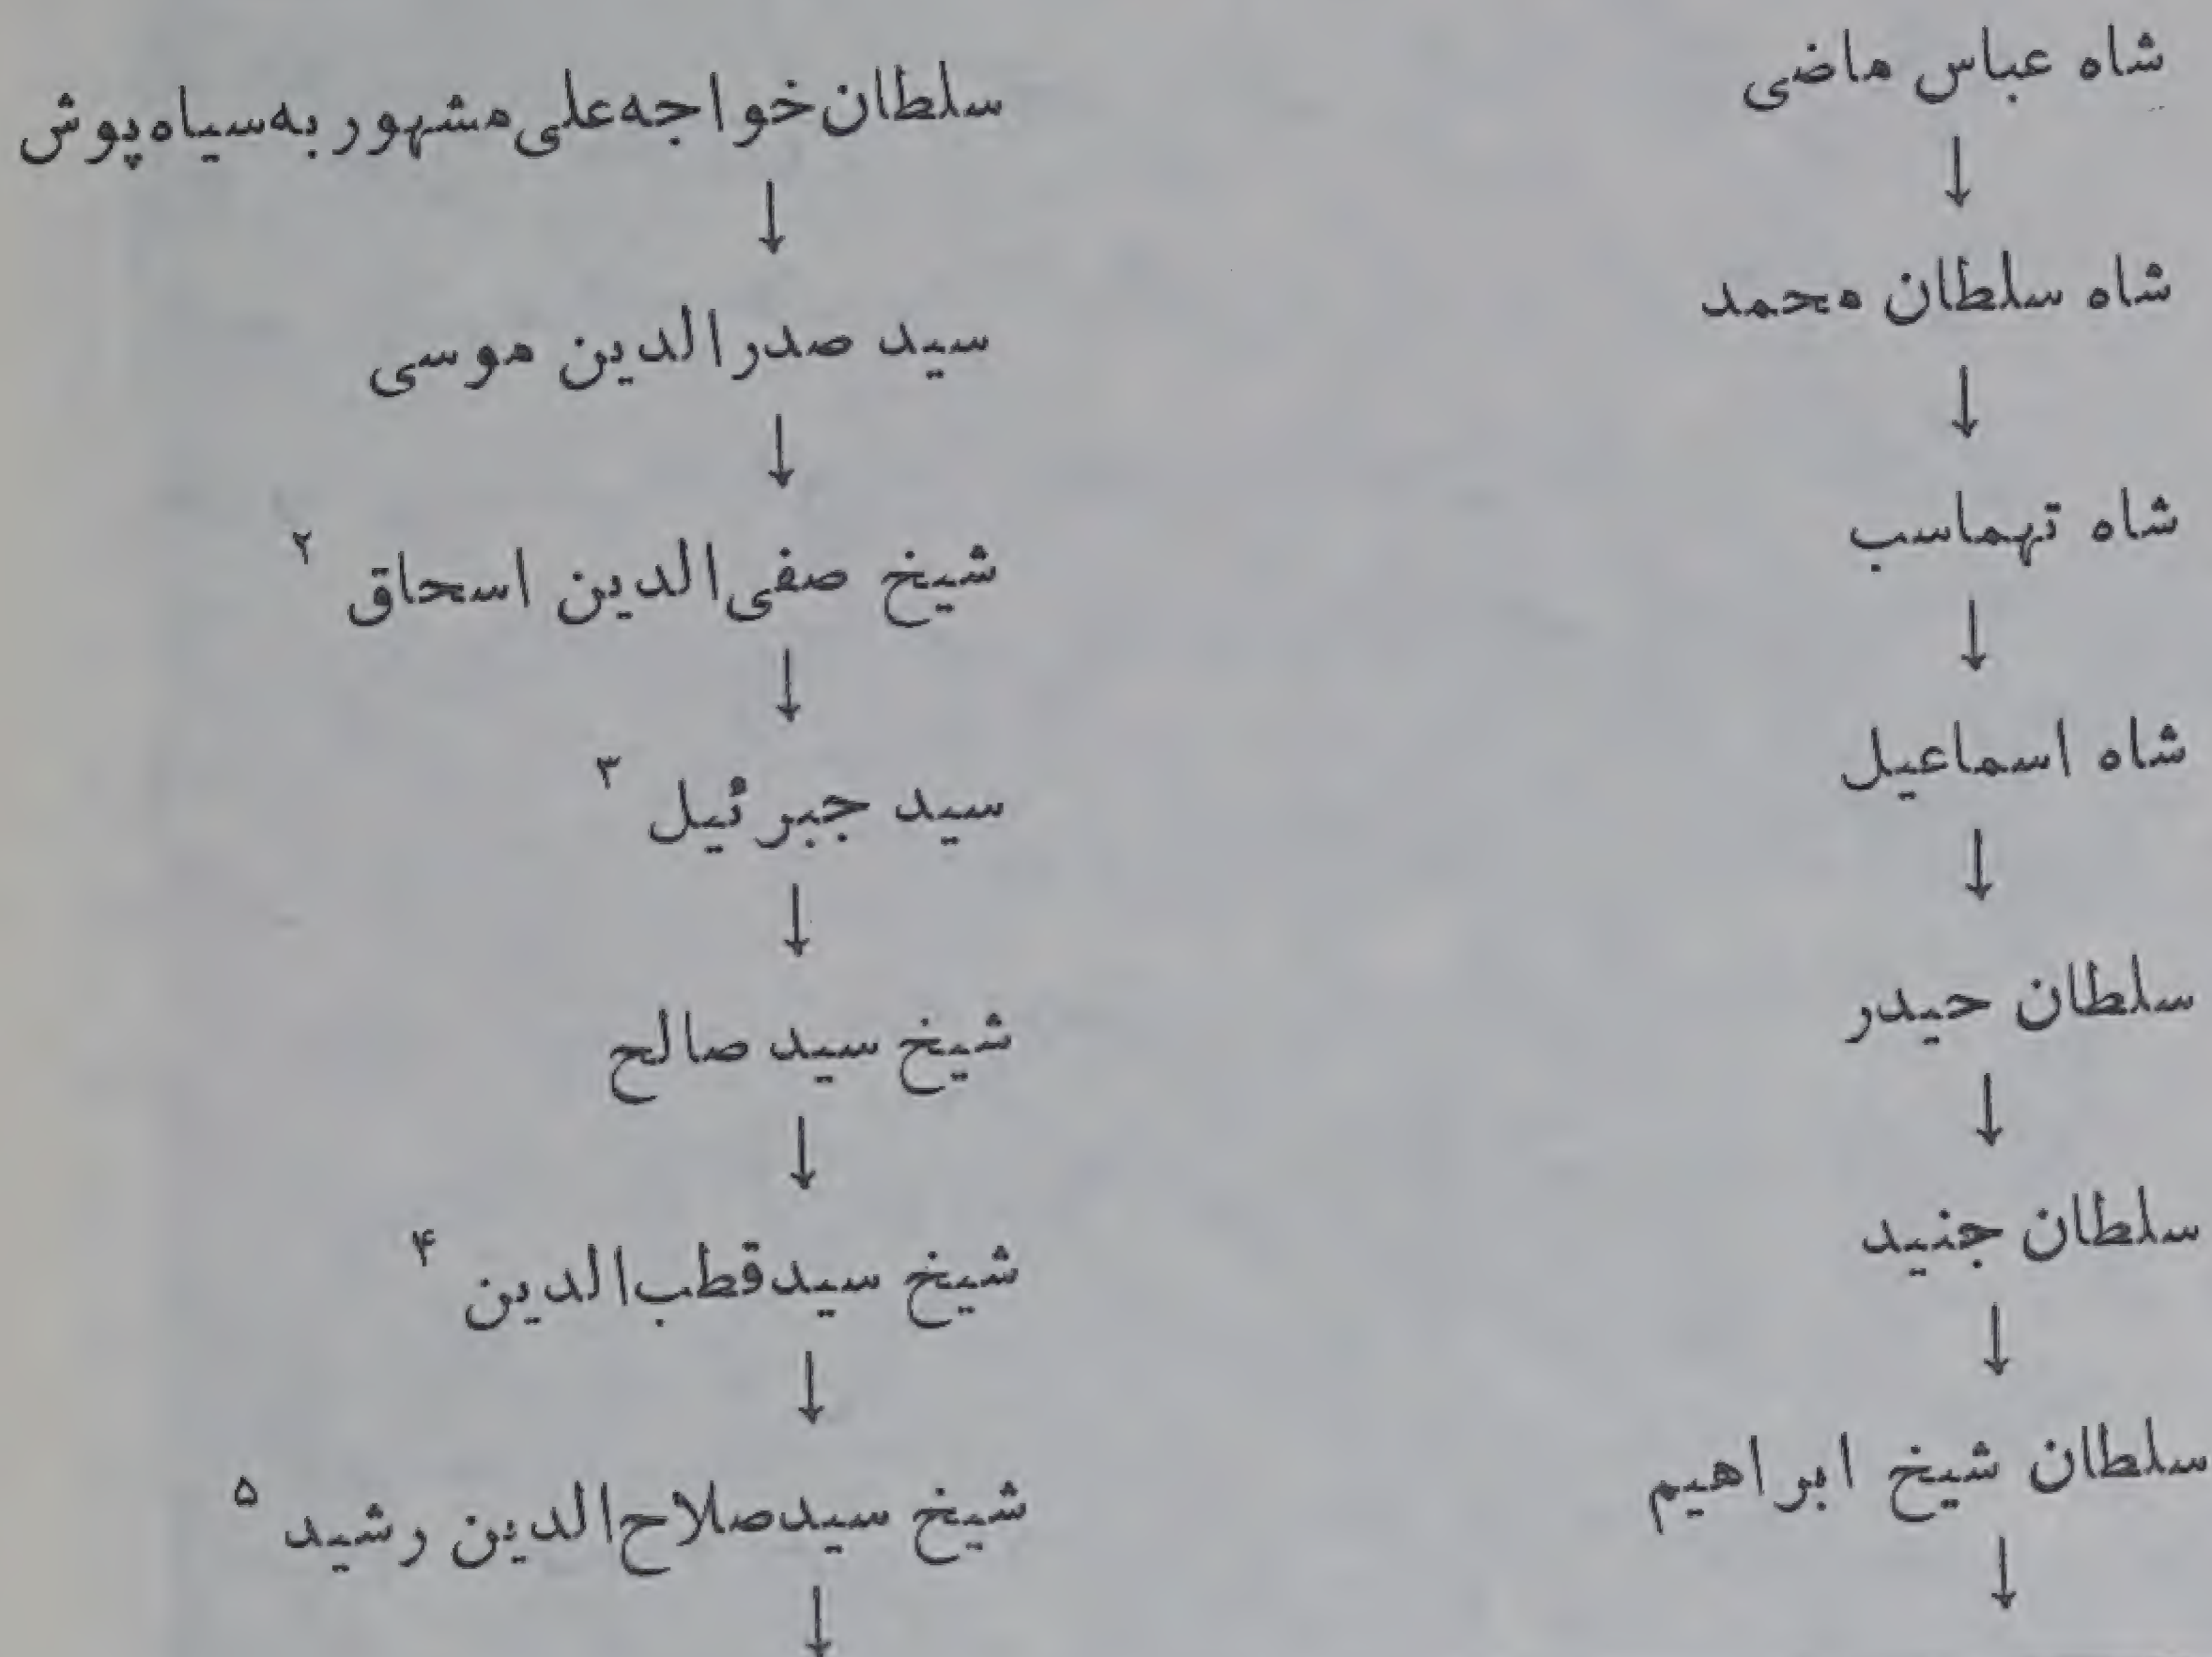 شاه عباس ماضی
↓
شاه سلطان محمد
↓
شاه تهماسب
↓
شاه اسماعیل
↓
سلطان حیدر
↓
سلطان جنید
↓
سلطان شیخ ابراهیم
↓
سلطان خواجه علی مشهور به سیاه پوش
↓
سید صدرالدین موسی
↓
شیخ صفی‌الدین اسحاق ۲
↓
سید جبرئیل ۳
↓
شیخ سید صالح
↓
شیخ سید قطب‌الدین ۴
↓
شیخ سید صلاح‌الدین رشید ۵
↓